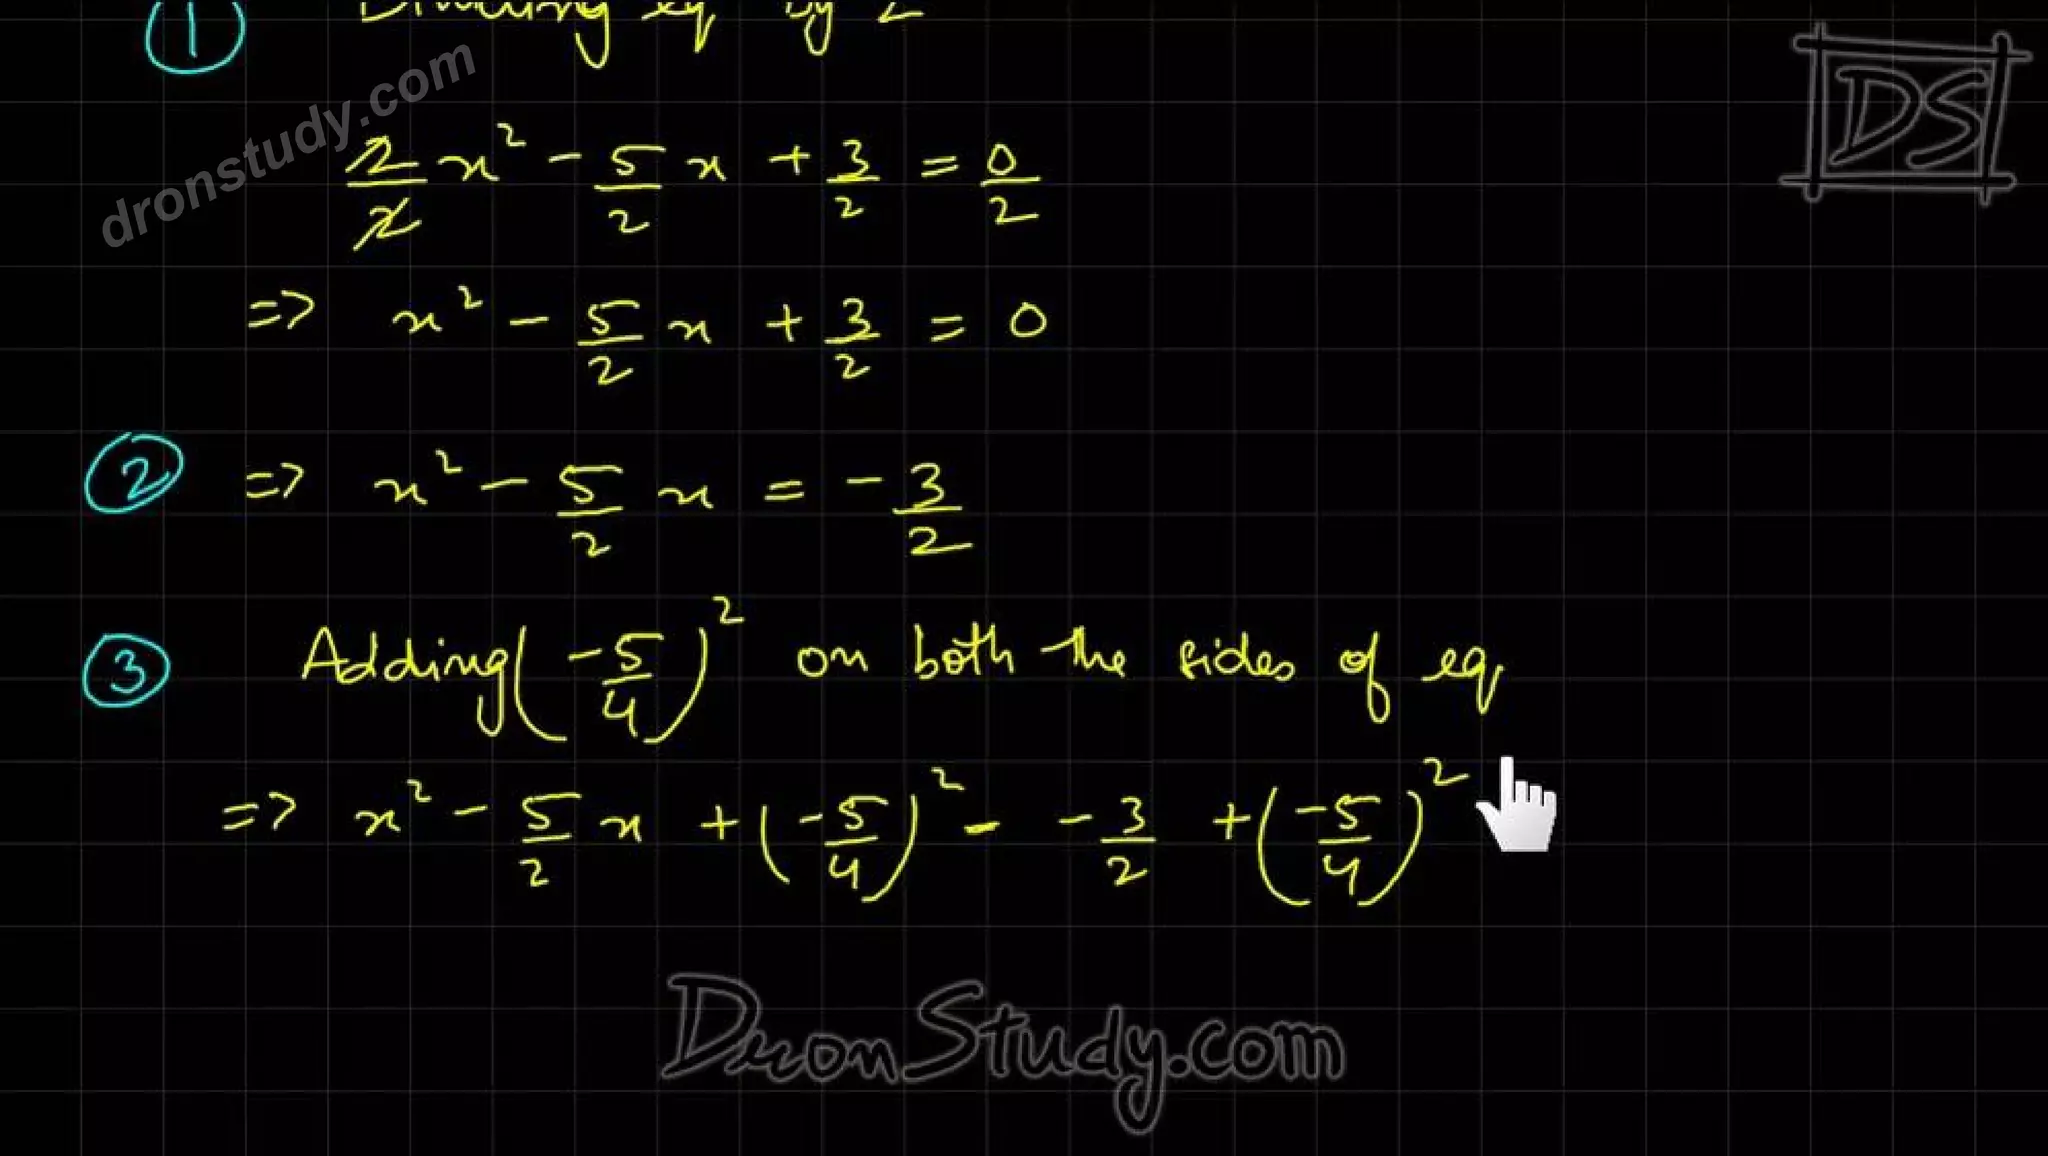 ① Dividing eq by 2
dronstudy.com
DS
2/2 x² - 5/2 x + 3/2 = 0/2
=> x² - 5/2 x + 3/2 = 0
② => x² - 5/2 x = - 3/2
③ Adding (-5/4)² on both the sides of eq
=> x² - 5/2 x + (-5/4)² - - 3/2 + (-5/4)²
DronStudy.com